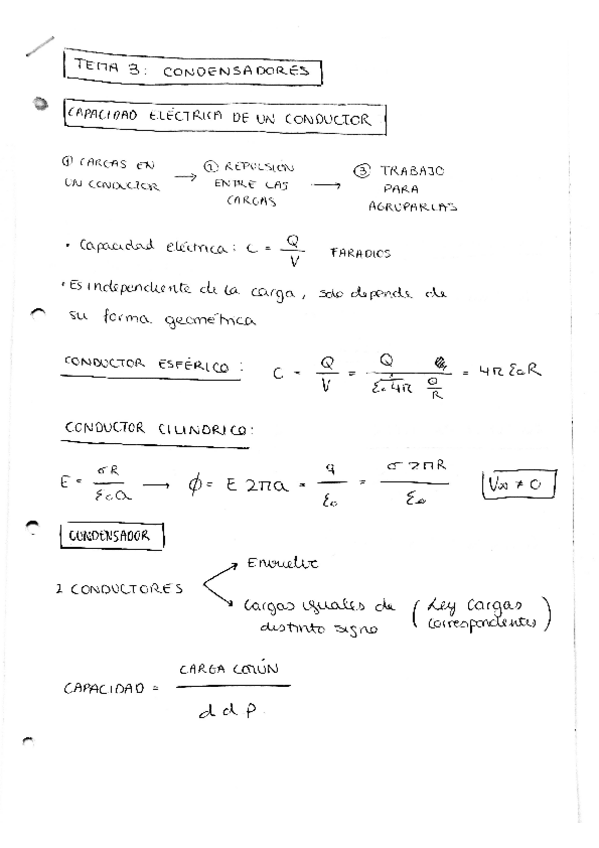 TEMA 3: CONDENSADORES
CAPACIDAD ELÉCTRICA DE UN CONDUCTOR
① CARGAS EN UN CONDUCTOR → ② REPULSION ENTRE LAS CARGAS → ③ TRABAJO PARA AGRUPARLAS
• Capacidad eléctrica: C = Q/V FARADIOS
• Es independiente de la carga, solo depende de
su forma geométrica
CONDUCTOR ESFÉRICO: C = Q/V = Q / = 4π ε₀R
CONDUCTOR CILINDRICO:
E = σR/ε₀a → ϕ = E 2πa = q/ε₀ = σ2πR/ε₀ V∞ ≠ 0
CONDENSADOR
2 CONDUCTORES
Cargas iguales de distinto signo (Ley Cargas correspondientes)
CAPACIDAD = CARGA COMÚN / d d p